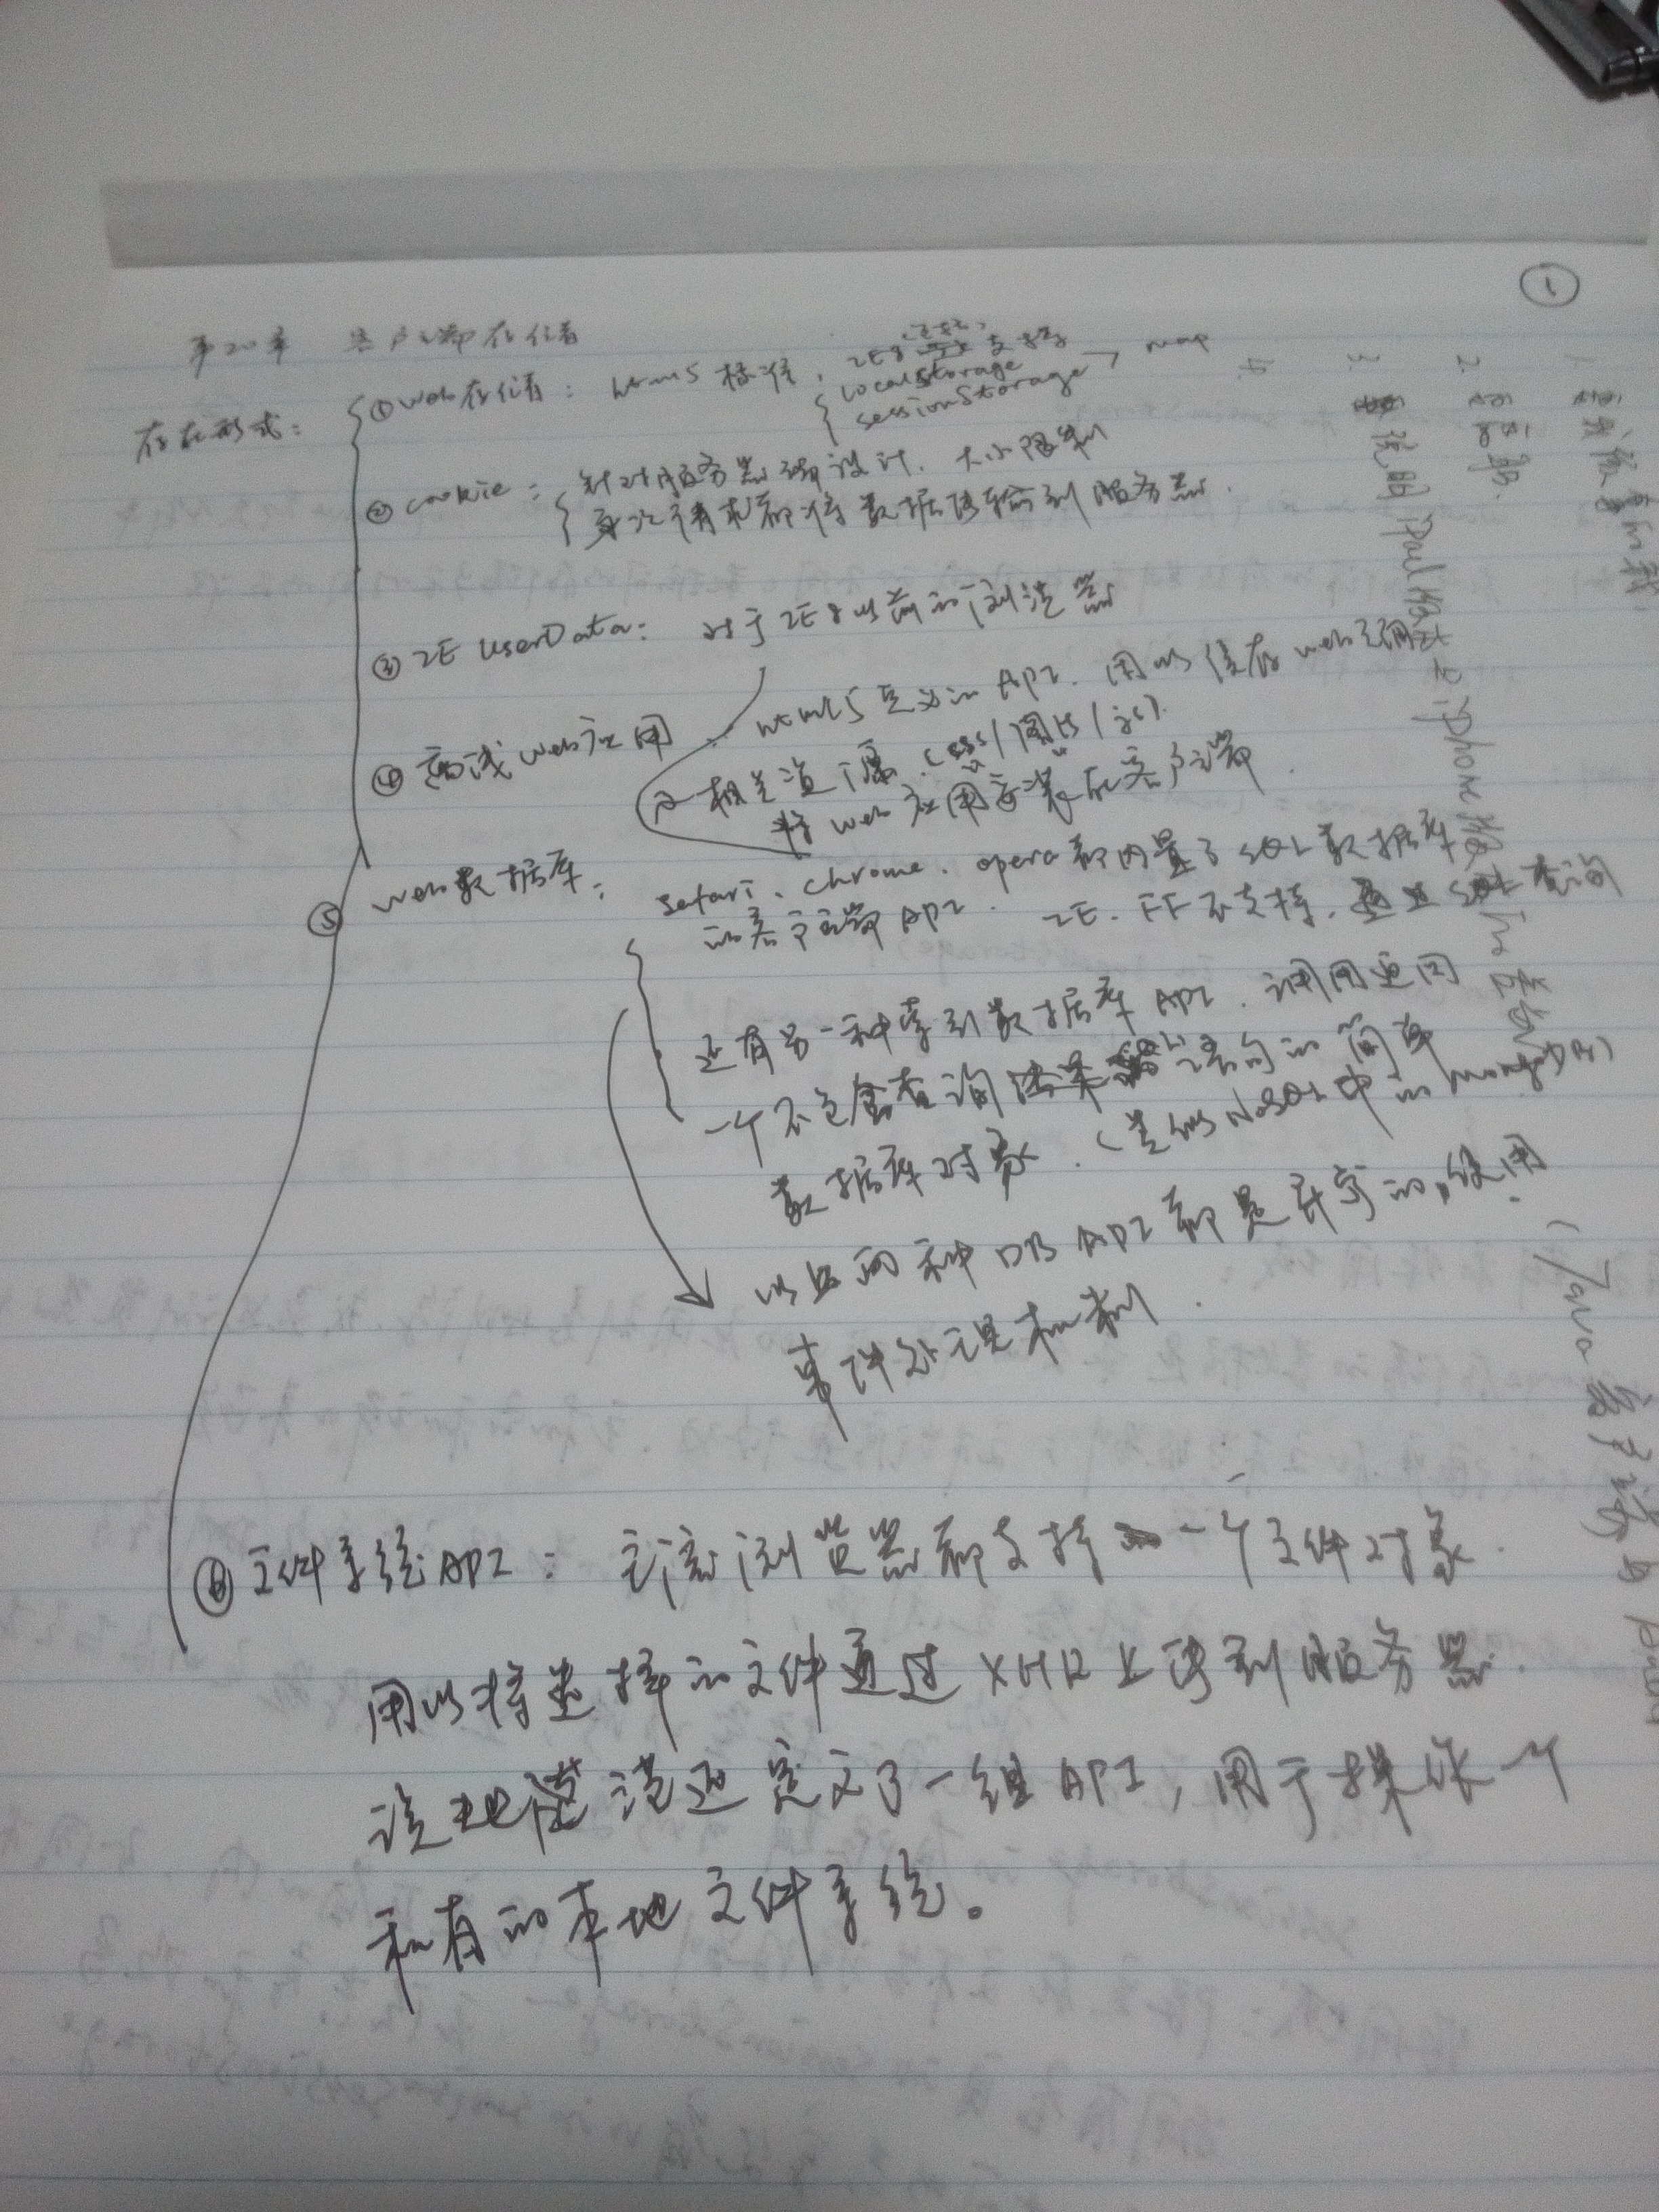 ①
第20章 客户端存储
存在形式:
①web存储: html5标准, IE8支持
localStorage
sessionStorage → map
②cookie: 针对服务器端设计. 大小限制
每次请求都将数据传输到服务器.
③IE UserData: 对于IE8以前的浏览器
④离线web应用 html5定义的API. 用以储存web页面
及相关资源. (css/图片/js).
将web应用安装在客户端.
⑤web数据库: safari、chrome、opera都内置了SQL数据库
的客户端API. IE、FF不支持. 查询
还有另一种索引数据库API. 调用返回
一个不包含查询语句的简单
数据库对象. (类似NoSQL中的mongoDB)
以上两种DB API都是异步的, 使用
事件处理机制.
⑥文件系统API: 主流浏览器都支持一个文件对象.
用以将选择的文件通过XHR上传到服务器.
该规范还定义了一组API, 用于操作一个
私有的本地文件系统。
1.
2.
3. iPad iPhone
4.
(Java